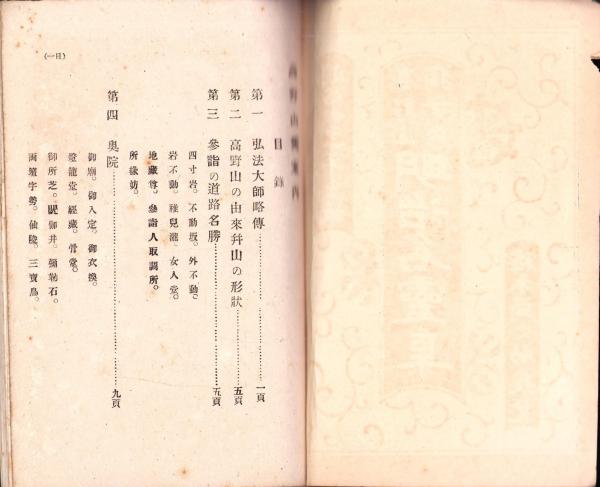 目錄
第一 弘法大師略傳…………一頁
第二 高野山の由來幷山の形狀…………五頁
第三 參詣の道路名勝…………五頁
四寸岩。不動坂。外不動。
岩不動。稚兒瀧。女人堂。
地藏尊。參詣人取調所。
所緣坊。
第四 奥院…………九頁
御廟。御入定。御衣換。
燈籠堂。經藏。骨堂。
御所芝。御井。彌勒石。
両壇字誓。仙陵。三寶鳥。
(目一)